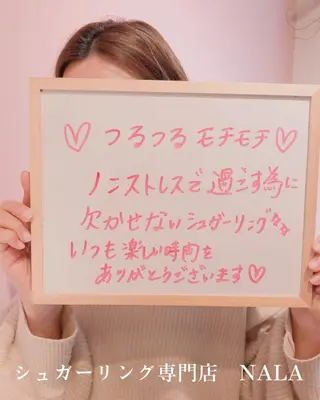 ♡つるつる モチモチ♡
ノンストレスで過ごす為に
欠かせないシュガーリング
いつも楽しい時間を
ありがとうございます♡
シュガーリング専門店 NALA